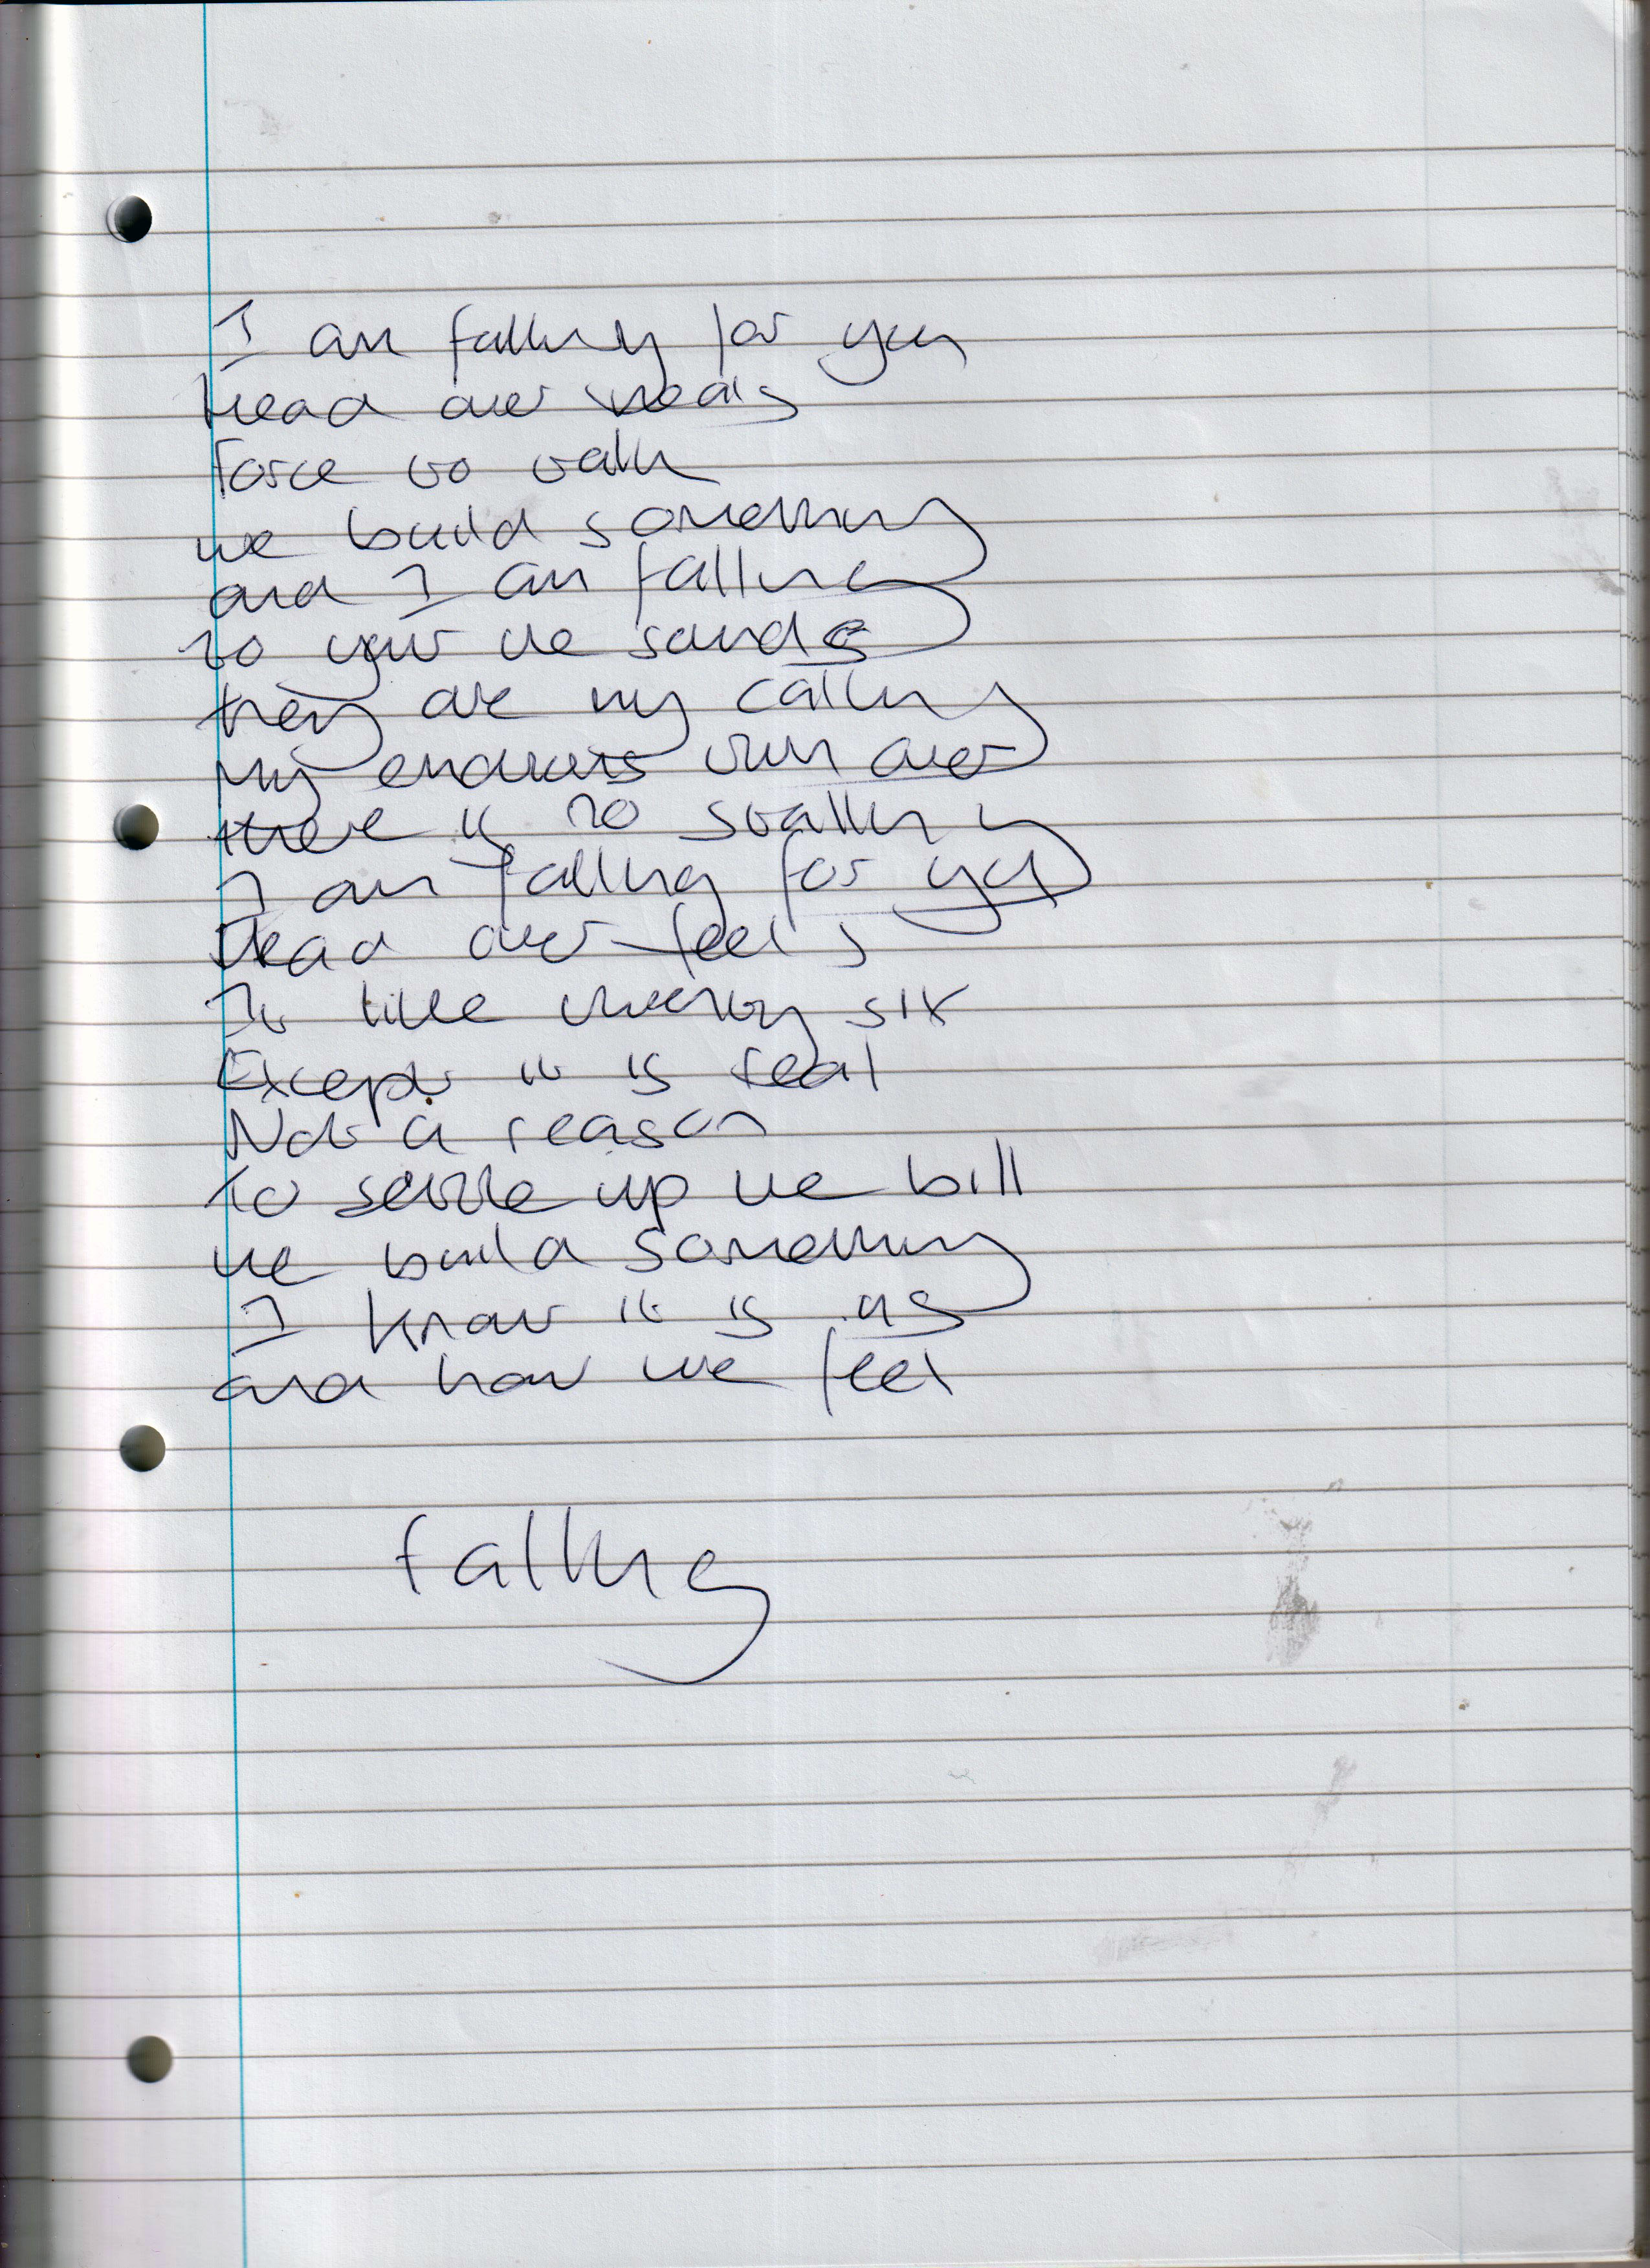 I am falling for you
head over
Force to talk
we build something
and I am falling
to your the sands
they are my calling
my endures run over
there is no stalling
I am falling for you
Head over feels
It like twenty six
Except it is real
Not a reason
To settle up the bill
we build something
I know it is us
and how we feel
falling